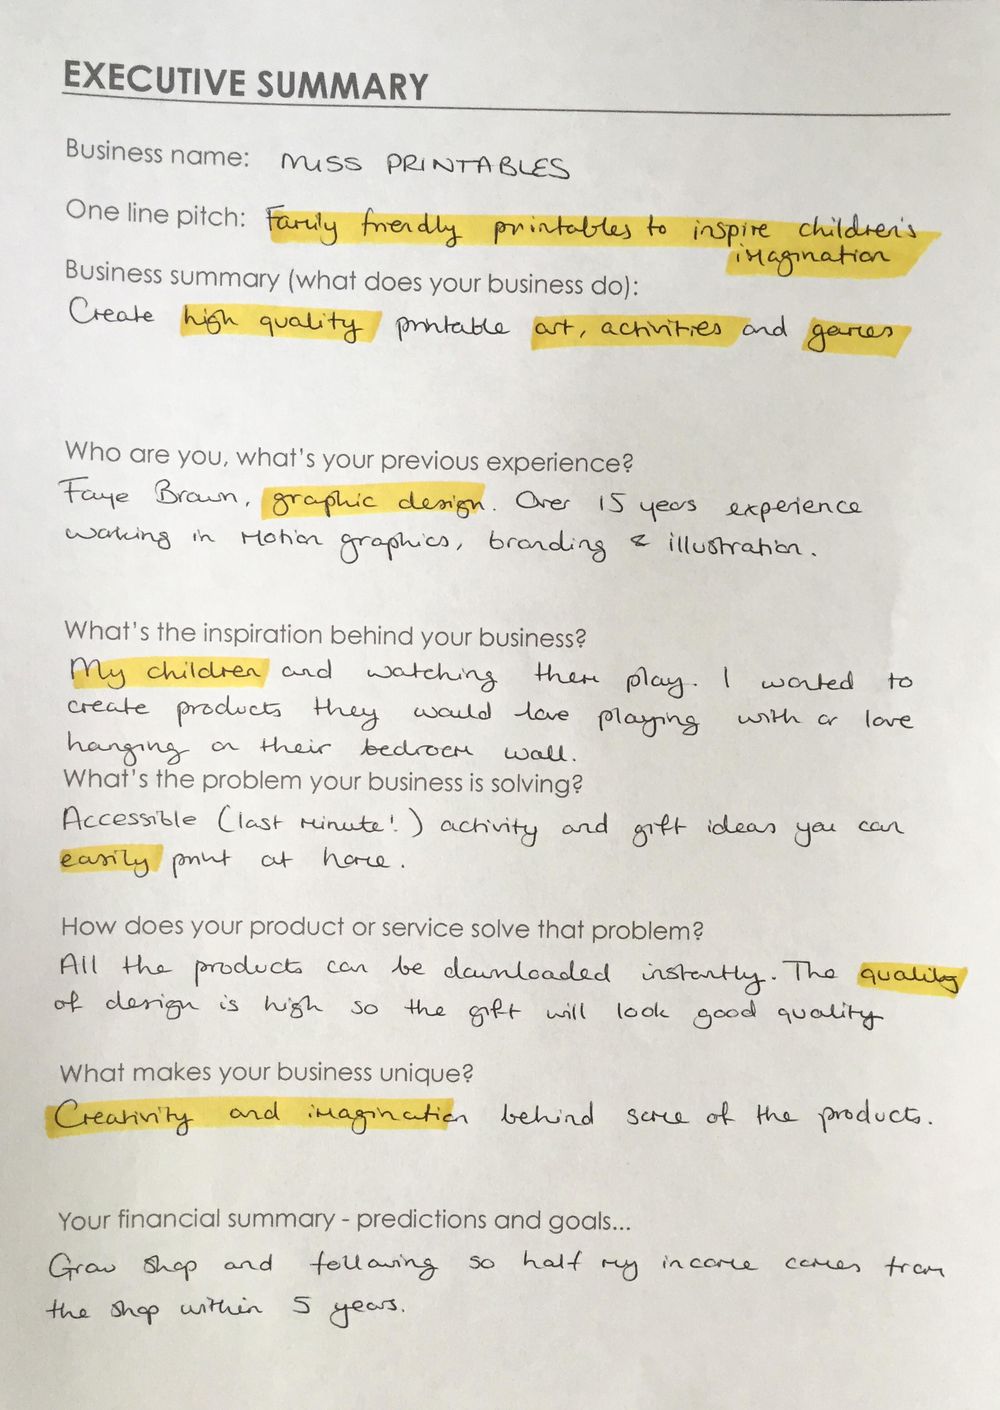 EXECUTIVE SUMMARY
Business name: MISS PRINTABLES
One line pitch: Family friendly printables to inspire children's
imagination
Business summary (what does your business do):
Create high quality printable art, activities and games
Who are you, what's your previous experience?
Faye Brown, graphic design. Over 15 years experience
working in motion graphics, branding & illustration.
What's the inspiration behind your business?
My children and watching them play. I wanted to
create products they would love playing with or love
hanging on their bedroom wall.
What's the problem your business is solving?
Accessible (last minute!) activity and gift ideas you can
easily print at home.
How does your product or service solve that problem?
All the products can be downloaded instantly. The quality
of design is high so the gift will look good quality
What makes your business unique?
Creativity and imagination behind some of the products.
Your financial summary - predictions and goals...
Grow shop and following so half my income comes from
the shop within 5 years.